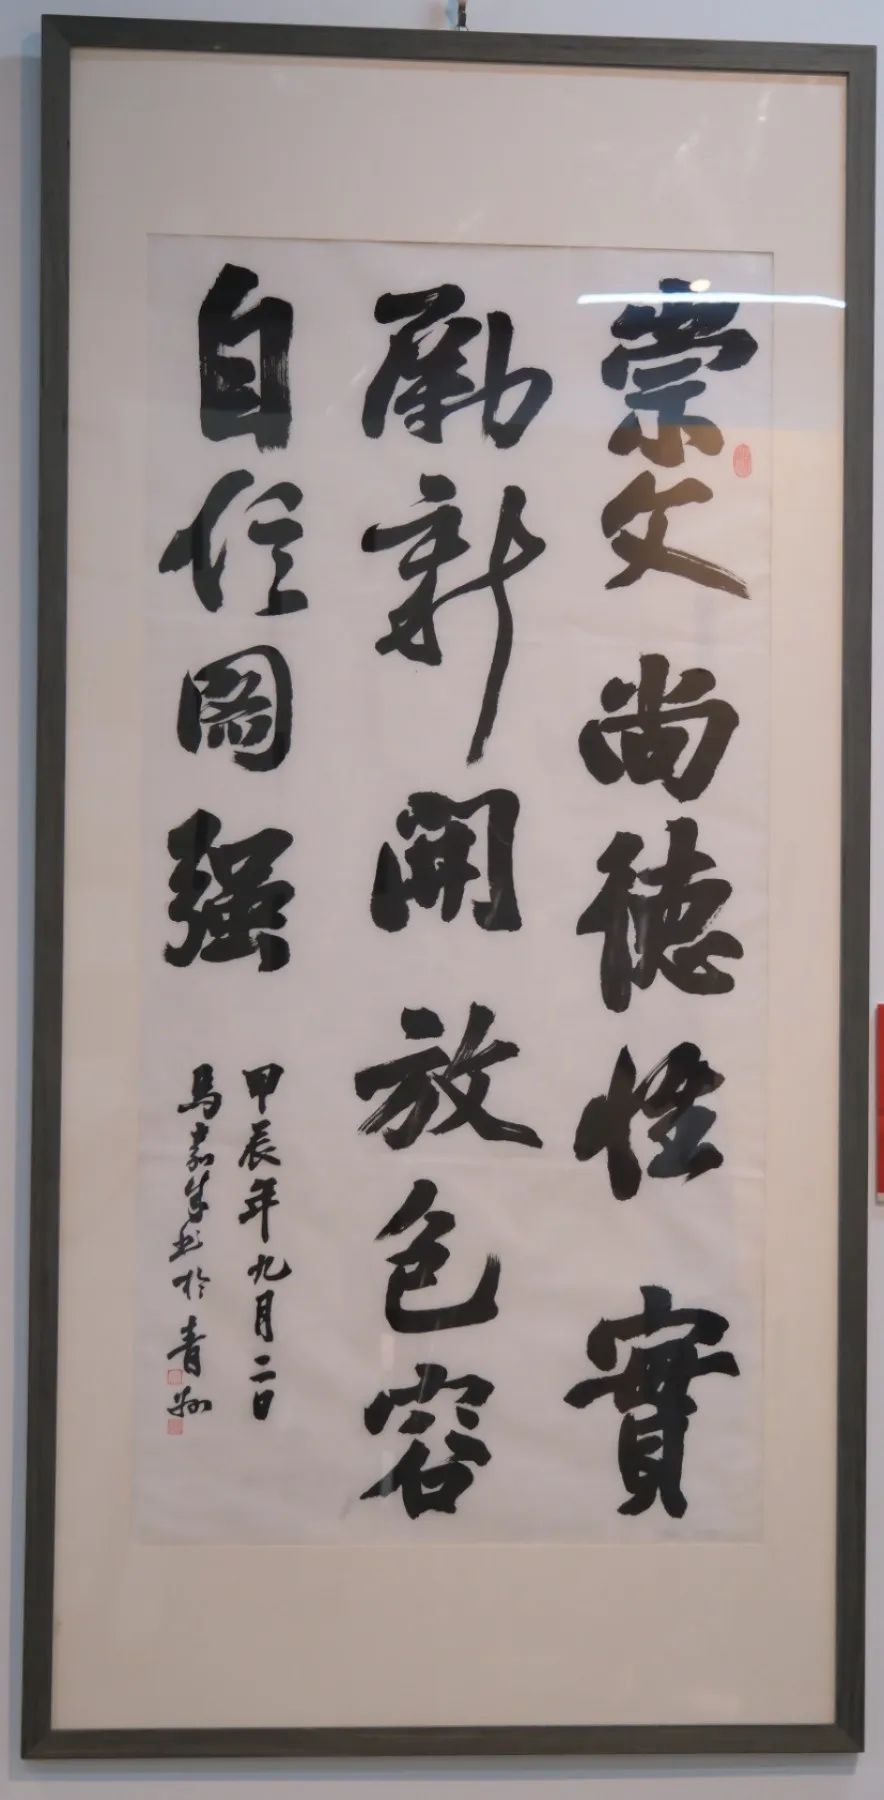 崇文尚德惟實
勵新開放包容
自信圖强
甲辰年九月二日
馬書於青州